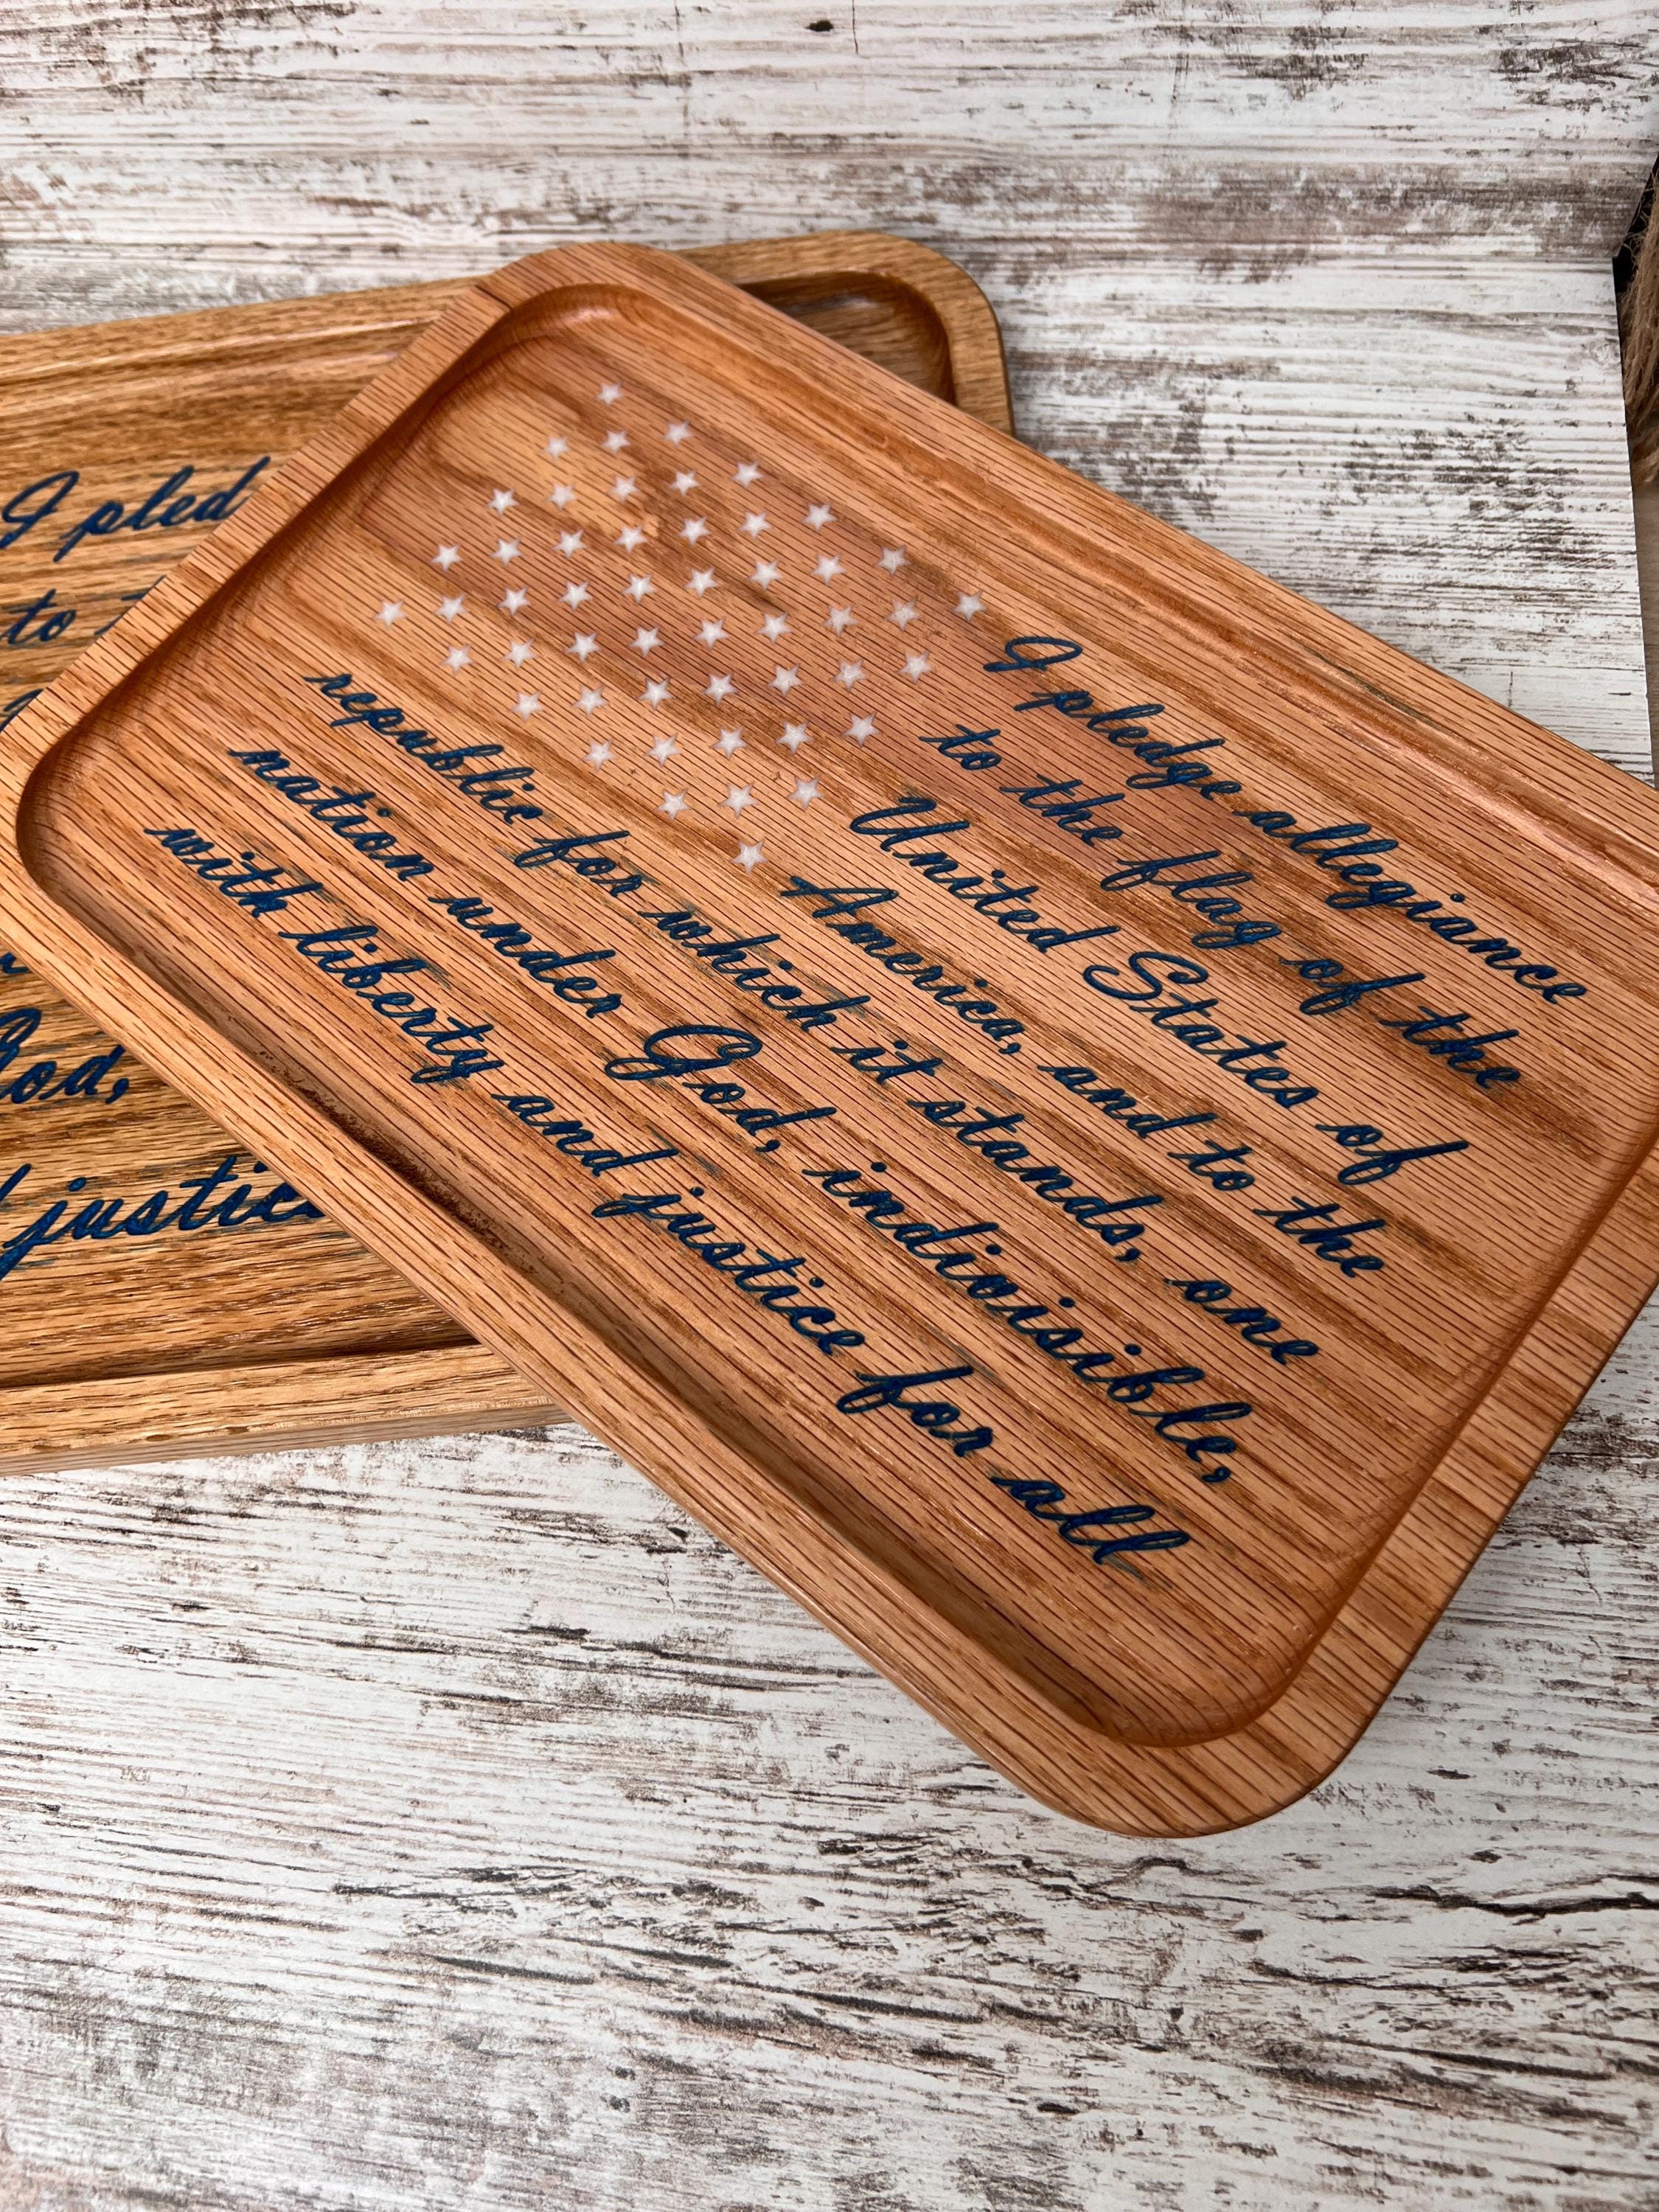 I pledge allegiance
to the flag of the
United States of
America, and to the
republic for which it stands, one
nation under God, indivisible,
with liberty and justice for all
I pled
to
God,
justice